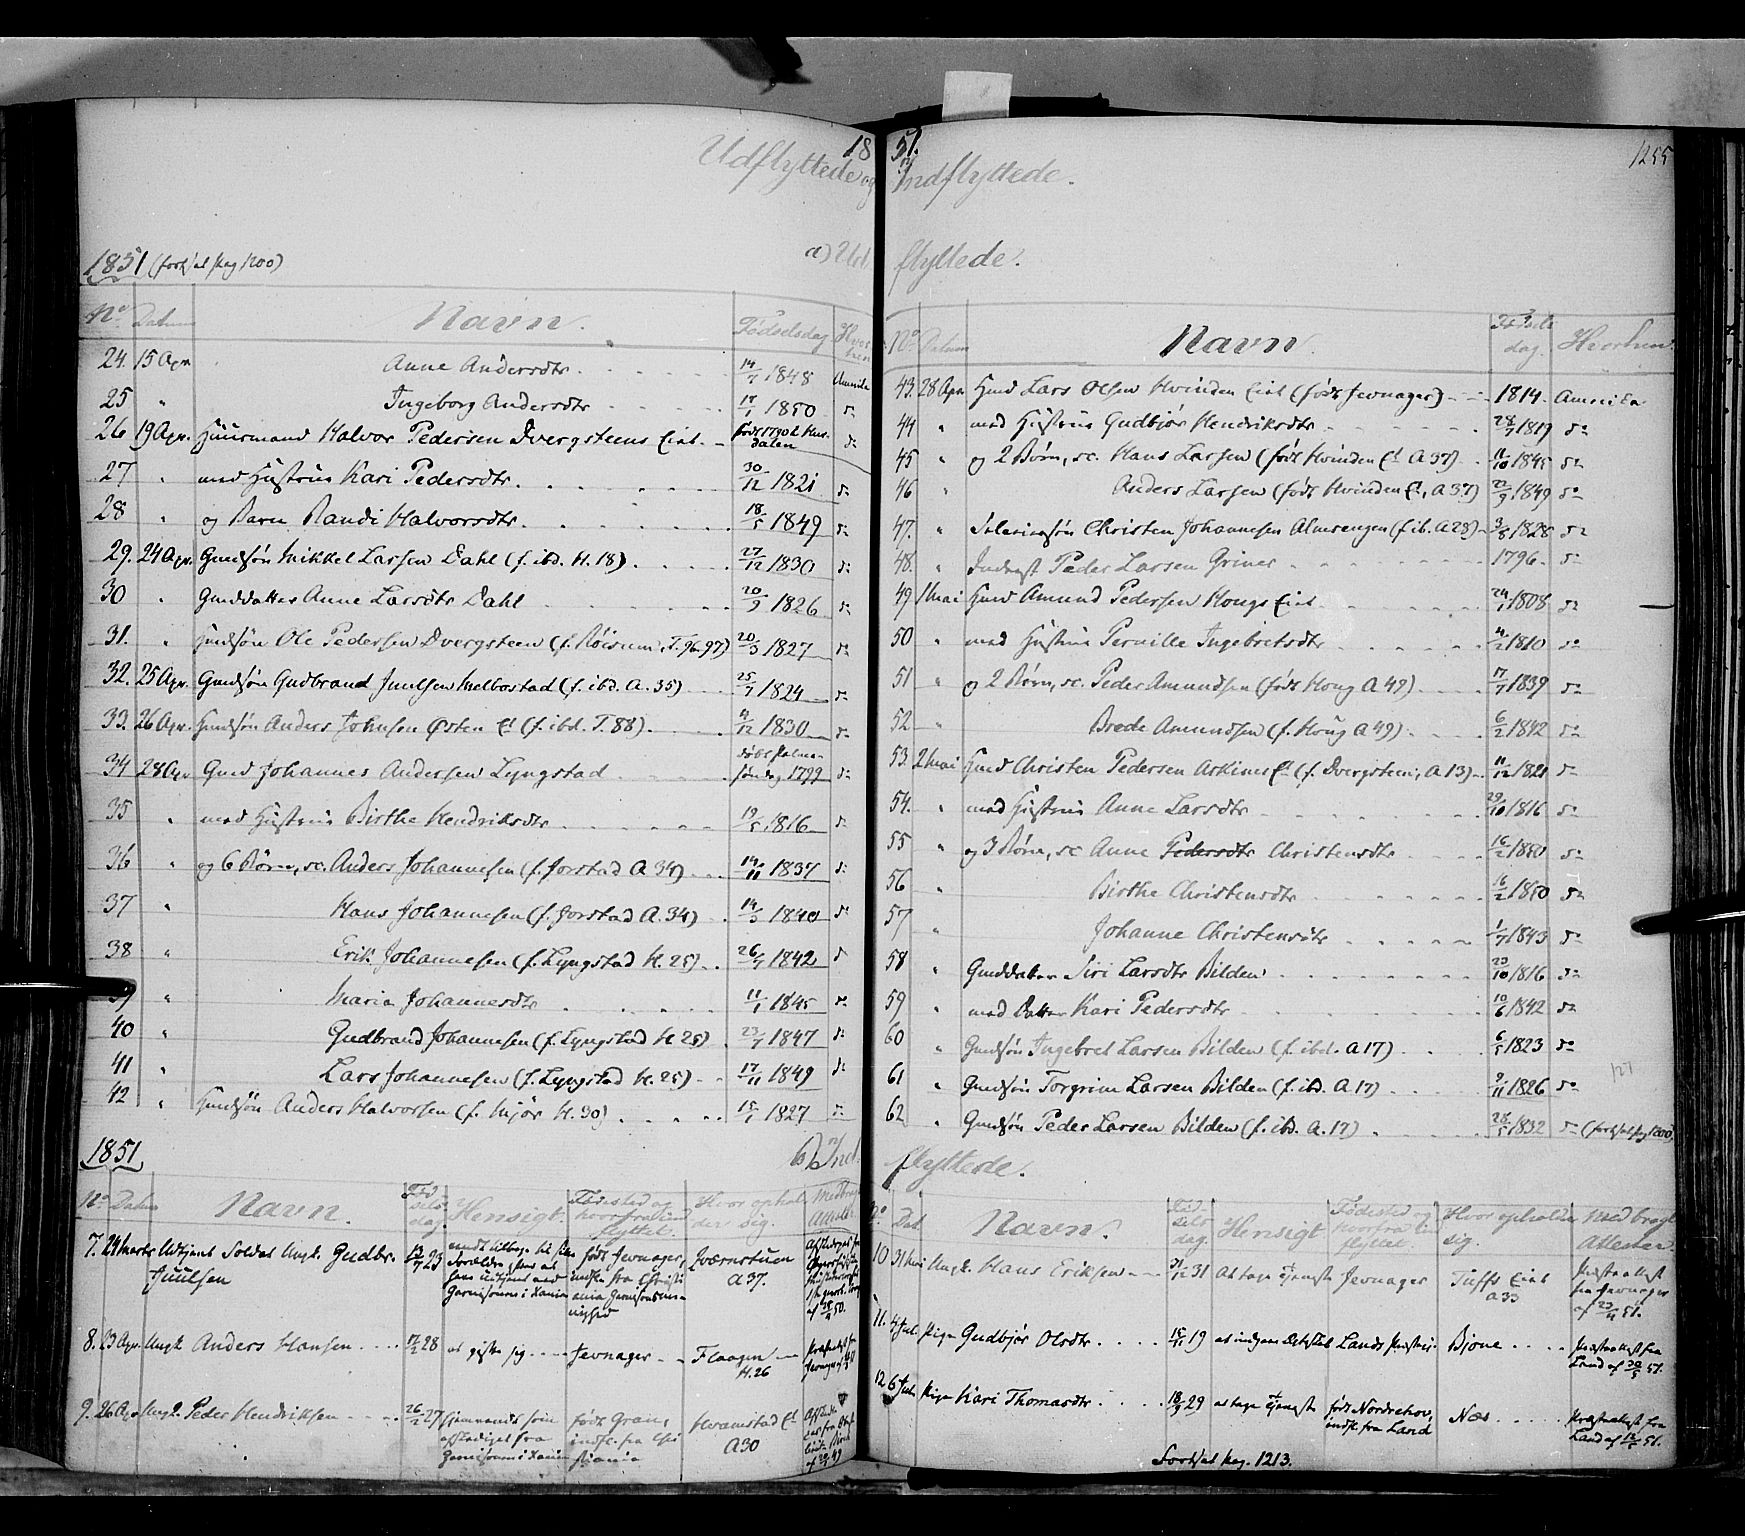 1851.
1255
Udflyttede og Indflyttede.
1851 (fortsat pag 1200)
a) Udflyttede.
No Datum Navn. Fødselsdag Hvorhen
24. 15 Apr Anne Andersdtr. 14/7 1848 Amerika
25 " Ingeborg Andersdtr 1850 do
26 19 Apr. Huusmand Halvor Pedersen Dvergsteens Eiet.
27 " med Hustrue Kari Pedersdtr. 30/12 1821 do
28 " og Barn Randi Halvorsdtr. 18/5 1849 do
29. 24 Apr. Gmdssøn Mikkel Larsen Dahl (f. ibd. H. 18) 27/12 1830 do
30 " Gmddatter Anne Larsdtr Dahl 20/9 1826 do
31. " Hmdssøn Ole Pedersen Dvergsteen (f. Røisum, T. 96.97) 20/3 1827 do
32. 25 Apr. Gmdssøn Gudbrand Juulsen Melbostad (f. ibd. A. 35) 25/7 1824 do
33. 26 Apr. Hmdssøn Anders Johnsen Østen Et (f. ibd. T. 88) 4/12 1830 do
34 28 Apr Gmd Johannes Andersen Lyngstad døbt Palmesøndag 1799 do
35 " med Hustrue Birthe Hendriksdtr 19/5 1816 do
36 " og 6 Børn, sc. Anders Johannesen (f. Jorstad A 34) 14/11 1837 do
37 " Hans Johannesen (f. Jorstad A. 34) 14/3 1840 do
38 " Erik Johannesen (f. Lyngstad H. 25) 26/7 1842 do
39 " Maria Johannesdtr 11/1 1845 do
40 " Gudbrand Johannesen (f. Lyngstad H 25) 23/7 1847 do
41 " Lars Johannesen (f. Lyngstad H. 25) 17/11 1849 do
42 " Hmdssøn Anders Halvorsen (f. Mjør H. 30) 15/1 1827 do
No Datum Navn. Fødselsdag. Hvorhen.
43. 28 Apr. Hmd Lars Olsen Hvinden Eiet (født Jevnager) 1814. Amerika
44 " med Hustrue Gudbjør Hendriksdtr 28/7 1819 do
45 " og 2 Børn, sc. Hans Larsen (født Hvinden Et A 37) 11/10 1845 do
46 " Anders Larsen (født Hvinden Et, A 37) 22/9 1849 do
47. " Christen Johannesen Almsengen (f. ib. A 28) 3/8 1828 do
48. " Inderst Peder Larsen Griner 1796 do
49 1 Mai Hmd Amund Pedersen Hougs Eiet 24/1 1808 do
50 " med Hustrue Pernille Ingebretsdtr 4/2 1810 do
51 " og 2 Børn, sc. Peder Amundsen (født Houg A 49) 17/7 1839 do
52 " Brede Amundsen (f. Houg A 49) 6/2 1842 do
53. 2 Mai Hmd Christen Pedersen Askims Et (f. Dvergsteen, A 13) 11/12 1821 do
54. " med Hustrue Anne Larsdtr 29/10 1816 do
55 " og 3 Børn, sc Anne Pedersdtr Christensdtr 16/2 1850 do
56 " Birthe Christensdtr 16/2 1850 do
57 " Johanne Christensdtr 1/7 1843 do
58 " Gmddatter Siri Larsdtr Bilden 23/10 1816 do
59 " med Datter Kari Pedersdtr 10/6 1842 do
60 " Gmdssøn Ingebret Larsen Bilden (f. ibd. A 17) 6/5 1823 do
61 " Gmdssøn Torgrim Larsen Bilden (f. ibd. A. 17) 9/11 1826 do
62 " Gmdssøn Peder Larsen Bilden (f. ibd. A. 17) 1832 do
127
1851
b) Indflyttede.
No Datum Navn. Fødselsdag Hensigt. Fødested og hvorfra indflyttet. Hvor opholder sig. Medbragt Attester
7. 24 Marts Udtjent Soldat Ungk. Gudbr. Juulsen 23 født Jevnager, indfl. fra Christiania Garnisons Kværnstuen A 37.
8. 23 Apr. Ungk Anders Hansen 17/2 28 at gifte sig Jevnager Flaagen H. 26
9. 26 Apr. Ungk. Peder Hendriksen 26/2 27 født Gran, indfl. fra Christiania Hvamstad Et A 30
No Dat. Navn. Fødselsdag. Hensigt Fødested og hvorfra indflyttet Hvor opholder sig. Medbragt Attester.
10 31 Mai Ungk. Hans Eriksen 31/12 31 at tage Tjeneste Jevnager Tuffs Eiet A 33 Præsteattest fra Jevnager af 51.
11. 4 Jul. Pige Gudbjør Olsdtr. 19 at indgaae Ægteskab Lands Præstegj. Bjone Præsteattest fra Land af 51.
12 6 Jul. Pige Kari Thomasdtr 18/9 29 at tage Tjeneste født Nordrehov, indfl. fra Land Næs Præsteattest fra Land af 51.
Fortsat Pag. 1213.